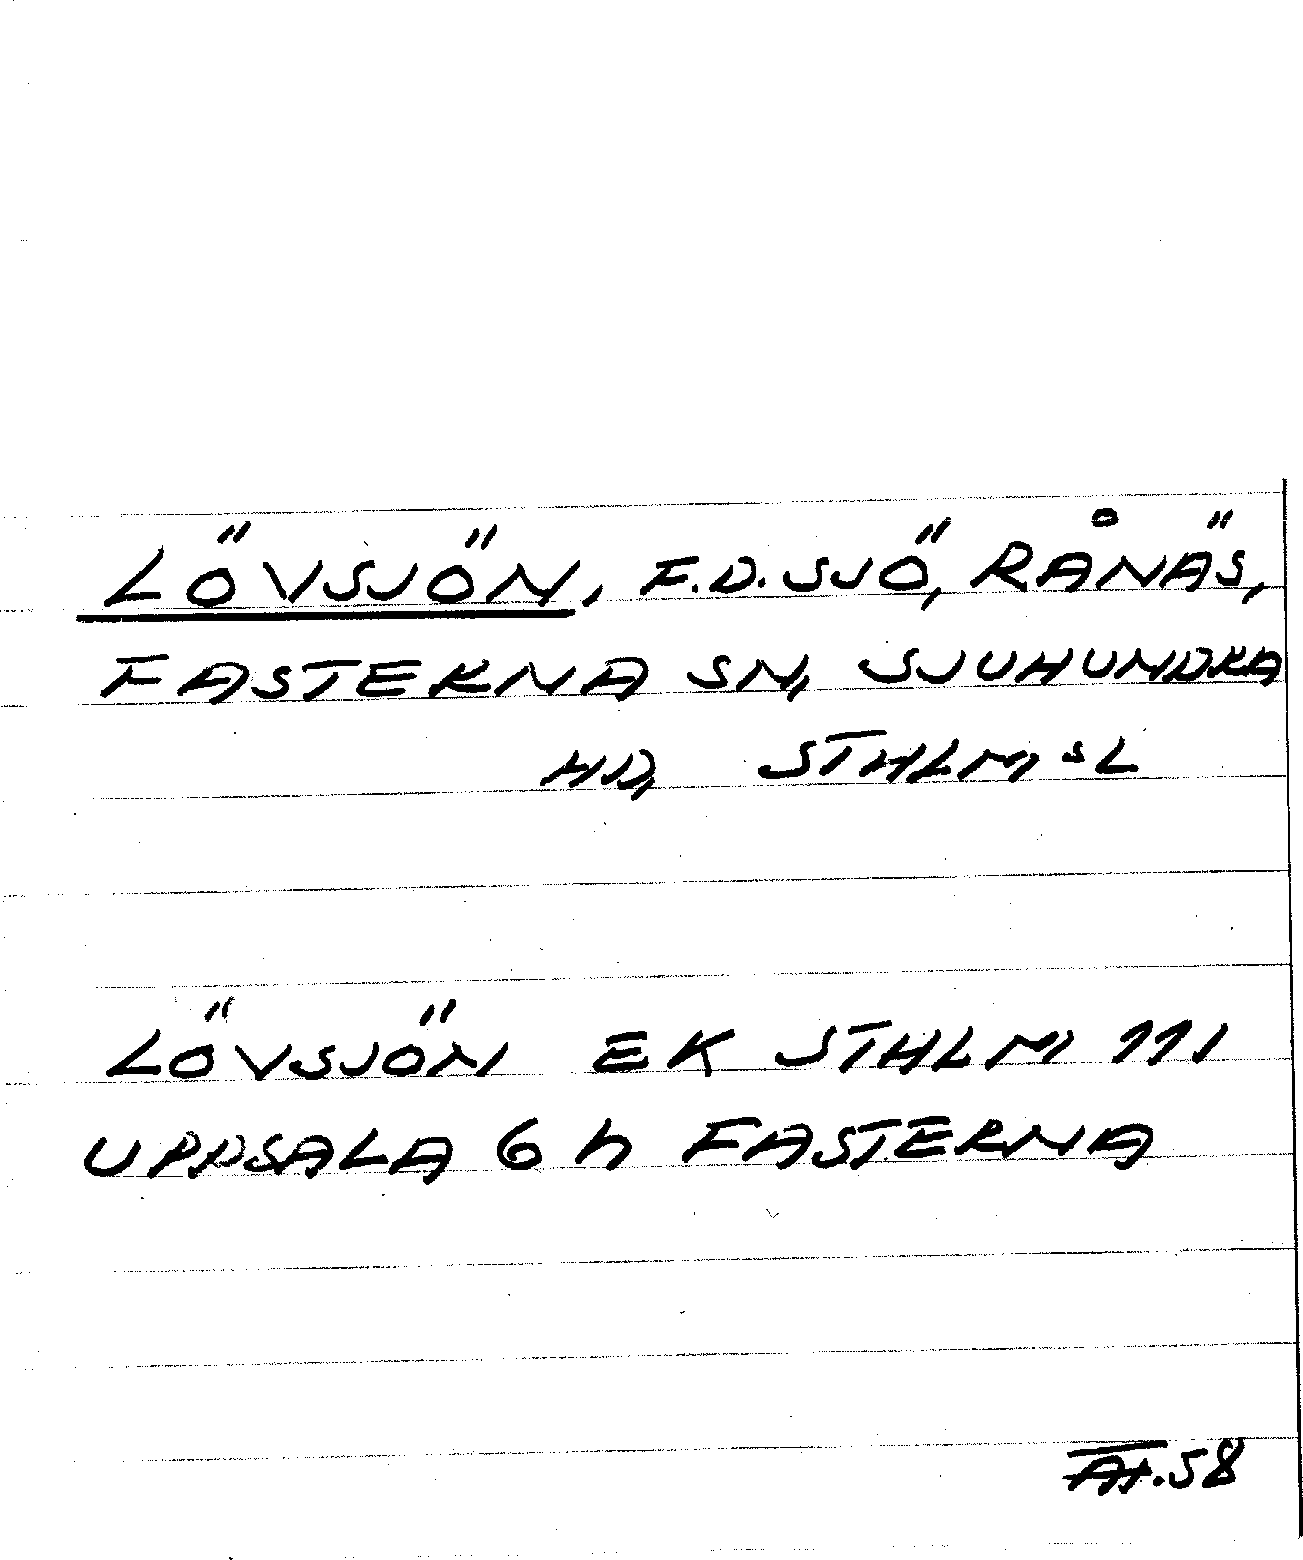 LÖVSJÖN, F.D. SJÖ, RÅNÄS,
FASTERNA SN, SJUHUNDRA
HD, STHLMSL
LÖVSJÖN EK STHLM 111
UPPSALA 6 h FASTERNA
.58